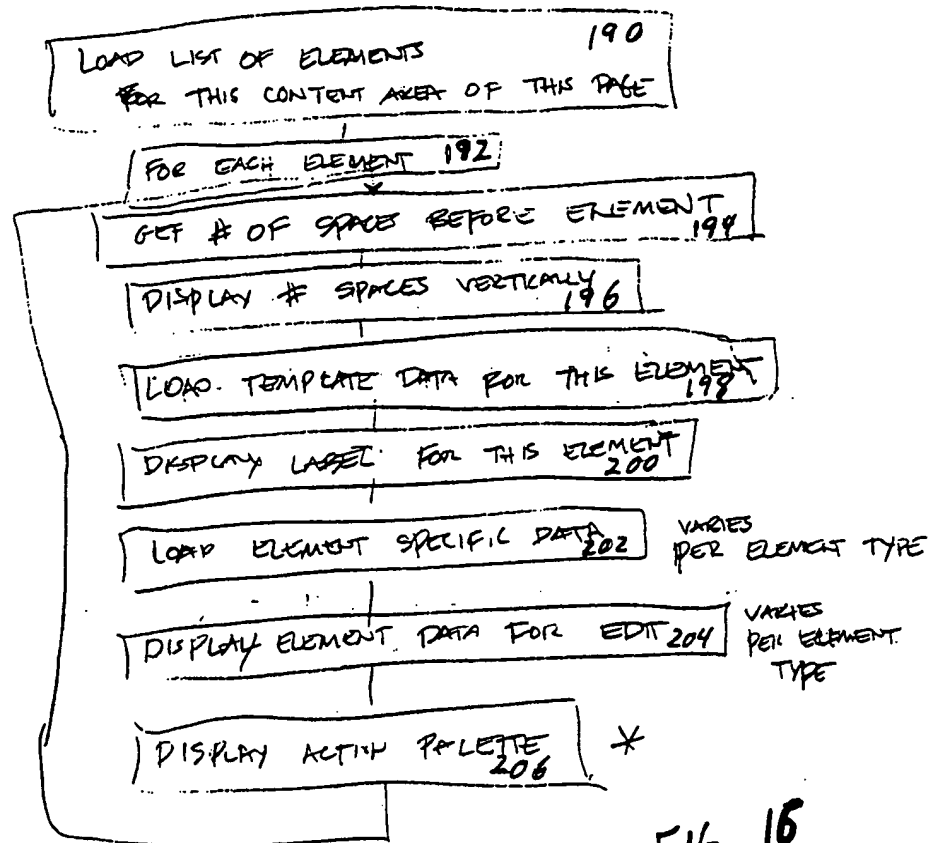 LOAD LIST OF ELEMENTS 190
FOR THIS CONTENT AREA OF THIS PAGE
FOR EACH ELEMENT 192
GET # OF SPACES BEFORE ELEMENT
194
DISPLAY # SPACES VERTICALLY
196
LOAD TEMPLATE DATA FOR THIS ELEMENT
198
DISPLAY LABEL FOR THIS ELEMENT
200
LOAD ELEMENT SPECIFIC DATA 202
VARIES
PER ELEMENT TYPE
DISPLAY ELEMENT DATA FOR EDIT 204
VARIES
PER ELEMENT
TYPE
DISPLAY ACTION PALETTE *
206